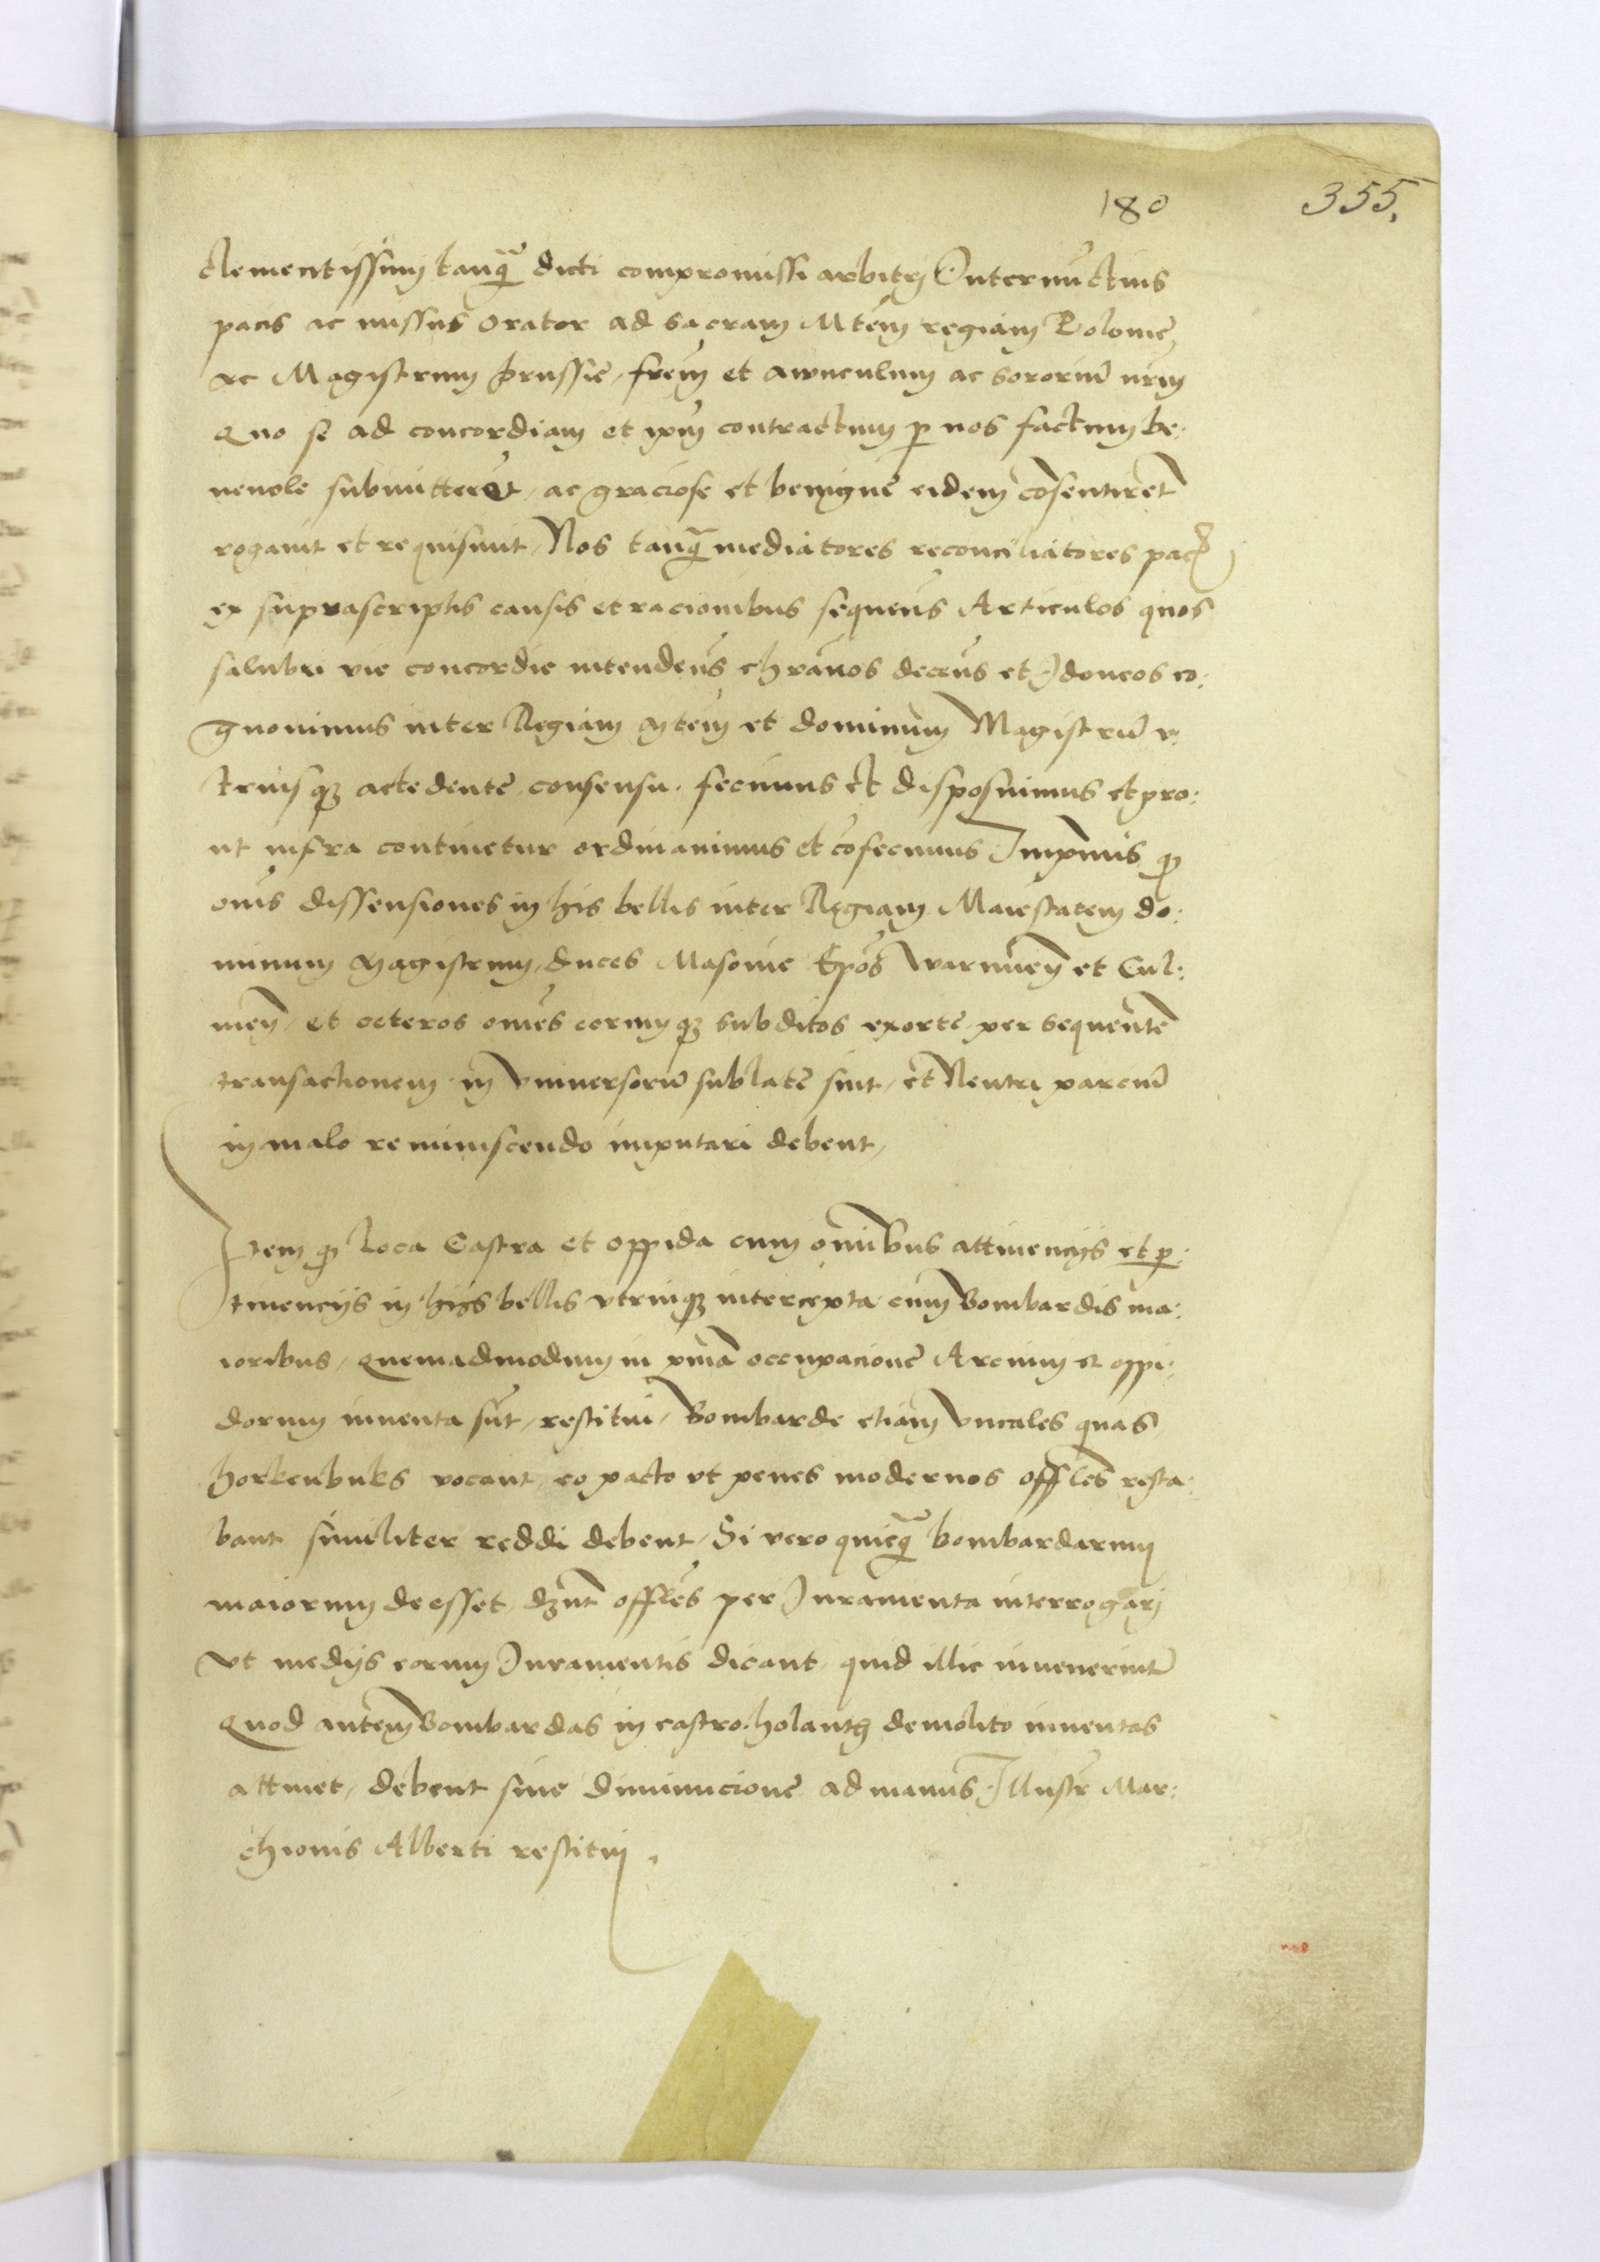 180 355.
clementissimj tanq̄ dicti compromissi arbitrj Internūctius
pacis ac missus Orator ad sacram Mtēm regiam Polonie
ac Magistrum prussie, frēm et awnculum ac sororiū nr̄m
Quo se ad concordiam et contractum p nos factum be:
neuole submitterēt, ac graciose et benigne eidem cōsentirēt
rogauit et requisiuit, Nos tanq̄ mediatores reconciliatores pac̄
ex suprascriptis causis et racionibus sequen̄s Articulos quos
salubri vie concordie intenden̄s decen̄s et Idoneos co:
gnouimus inter Regiam Mtēm et dominum Magistrū v:
triusq3 accedente consensu. fecimus et disposuimus et pro:
ut infra continetur ordinauimus et cōfecimus Imprimis q
om̄s dissensiones in his bellis inter Regiam Maiestatem do:
minum Magistrum, duces Masouie Ep̄os Warmien̄ et Cul:
men̄, et ceteros om̄es eorumq3 subditos exorte, per sequentē
transactionem in vniuersorū sublate sint, et Neutri parciū
in malo reminiscendo imputari debent,
Item q Loca Castra et oppida cum omnibus attinencijs et p:
tinencijs in his bellis vtrinq3 intercepta cum Bombardis ma:
ioribus, quemadmodum in prima occupacione Arcium et oppi:
dorum inuenta sūt, restitui, Bombarde etiam vncales quas
horkenbuks vocant, eo pacto vt penes modernos offles resta:
bant similiter reddi debent, Si vero quicq̄ bombardarum
maiorum deesset, offles per Juramenta interrogarj
vt medijs eorum Juramentis dicant, quid illic inuenerint
Quod autem Bombardas in castro holanth demolito inuentas
attinet, debent sine diminucione ad manus Illustr̄ Mar:
chionis Alberti restitui.